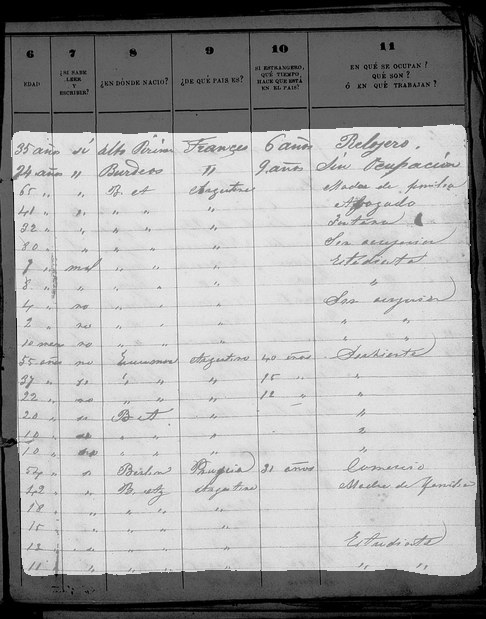 6 7 8 9 10 11
EDAD ¿SI SABE LEER Y ESCRIBIR? ¿EN DÓNDE NACIÓ? ¿DE QUÉ PAIS ES? SI ESTRANGERO, QUÉ TIEMPO HACE QUE ESTÁ EN EL PAIS? EN QUÉ SE OCUPAN? QUÉ SON? Ó EN QUÉ TRABAJAN?
35 años sí alto Frances 6 años Relojero.
24 años " Burdeos " 9 años Sin Ocupación
65 " " B. A. Argentina Madre de familia
41 " " " " " Abogado
32 " " " " "
80 " " " " " Sin ocupación
9 " mal " " " Estudiante
8 " " " " " "
4 " no " " " Sin ocupación
2 " no " " " " "
10 meses no " " " " "
55 años no Argentino 40 años Sirvienta
37 " " " 15 " "
22 " no " " 12 " "
20 " " B. A. " "
10 " " " "
10 " no " " "
54 " " Berlin Prusia 31 años Comercio
42 " " B. A. Argentina Madre de familia
18 " " " " "
15 " " " " "
13 " " " " " Estudiante
11 " " " " " " "